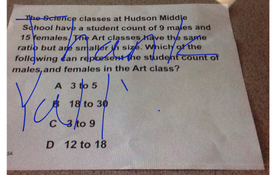 The Science classes at Hudson Middle
School have a student count of 9 males and
15 females. The Art classes have the same
ratio but are smaller in size. Which of the
following can represent the student count of
males and females in the Art class?
A 3 to 5
B 18 to 30
C 3 to 9
D 12 to 18